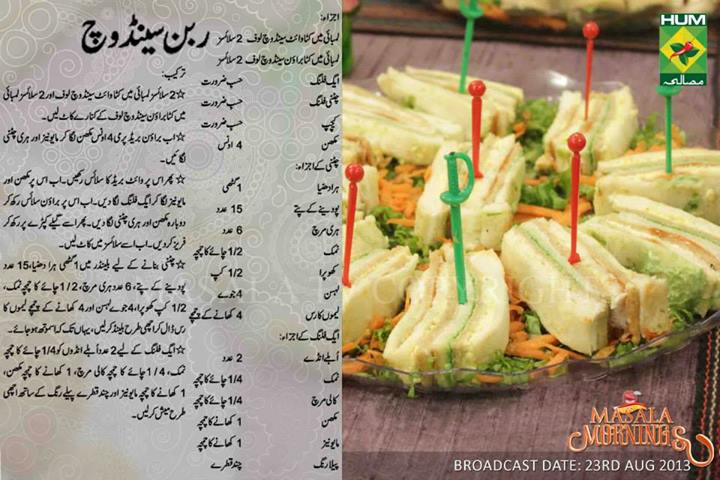 ربن سینڈوچ
اجزاء:
لمبائی میں کٹا وائٹ سینڈوچ لوف 2 سلائسز
لمبائی میں کٹا براؤن سینڈوچ لوف 2 سلائسز
ایگ فلنگ حسب ضرورت
چٹنی فلنگ حسب ضرورت
کیچپ حسب ضرورت
مکھن 4 اونس
چٹنی کے اجزاء:
ہرا دھنیا 1 گٹھی
پودینے کے پتے 15 عدد
ہری مرچ 6 عدد
نمک 1/2 چائے کا چمچہ
کھوپرا 1/2 کپ
لہسن 4 جوے
لیموں کا رس 4 کھانے کے چمچے
ایگ فلنگ کے اجزاء:
اُبلے انڈے 2 عدد
نمک 1/4 چائے کا چمچہ
کالی مرچ 1/4 چائے کا چمچہ
مکھن 1 کھانے کا چمچہ
مایونیز 1 کھانے کا چمچہ
پیلا رنگ چند قطرے
ترکیب:
☆ 2 سلائسز لمبائی میں کٹا وائٹ سینڈوچ لوف اور 2 سلائسز لمبائی
میں کٹا براؤن سینڈوچ لوف کے کنارے کاٹ لیں۔
☆ اب براؤن بریڈ پر می 4 اونس مکھن لگا کر مایونیز اور ہری چٹنی
لگائیں۔
☆ پھر اس پر وائٹ بریڈ کا سلائس رکھیں۔ اب اس پر مکھن اور
مایونیز لگا کر ایگ فلنگ لگا دیں۔ اب اس پر براؤن سلائس رکھ کر
دوبارہ مکھن اور ہری چٹنی لگا دیں۔ پھر اسے گیلے کپڑے پر رکھ کر
فریز کر دیں۔ اب اسے سلائسز میں کاٹ لیں۔
☆ چٹنی بنانے کے لیے بلینڈر میں 1 گٹھی ہرا دھنیا، 15 عدد
پودینے کے پتے، 6 عدد ہری مرچ، 1/2 چائے کا چمچہ نمک،
1/2 کپ کھوپرا، 4 جوے لہسن اور 4 کھانے کے چمچے لیموں کا
رس ڈال کر اچھی طرح بلینڈ کر لیں، یہاں تک کہ اسموتھ ہو جائے۔
☆ ایگ فلنگ کے لیے 2 عدد اُبلے انڈوں کو 1/4 چائے کا چمچہ
نمک، 1/4 چائے کا چمچہ کالی مرچ، 1 کھانے کا چمچہ مکھن،
1 کھانے کا چمچہ مایونیز اور چند قطرے پیلے رنگ کے ساتھ اچھی
طرح میش کر لیں۔
HUM
مصالحہ
MASALA
MORNINGS
BROADCAST DATE: 23RD AUG 2013